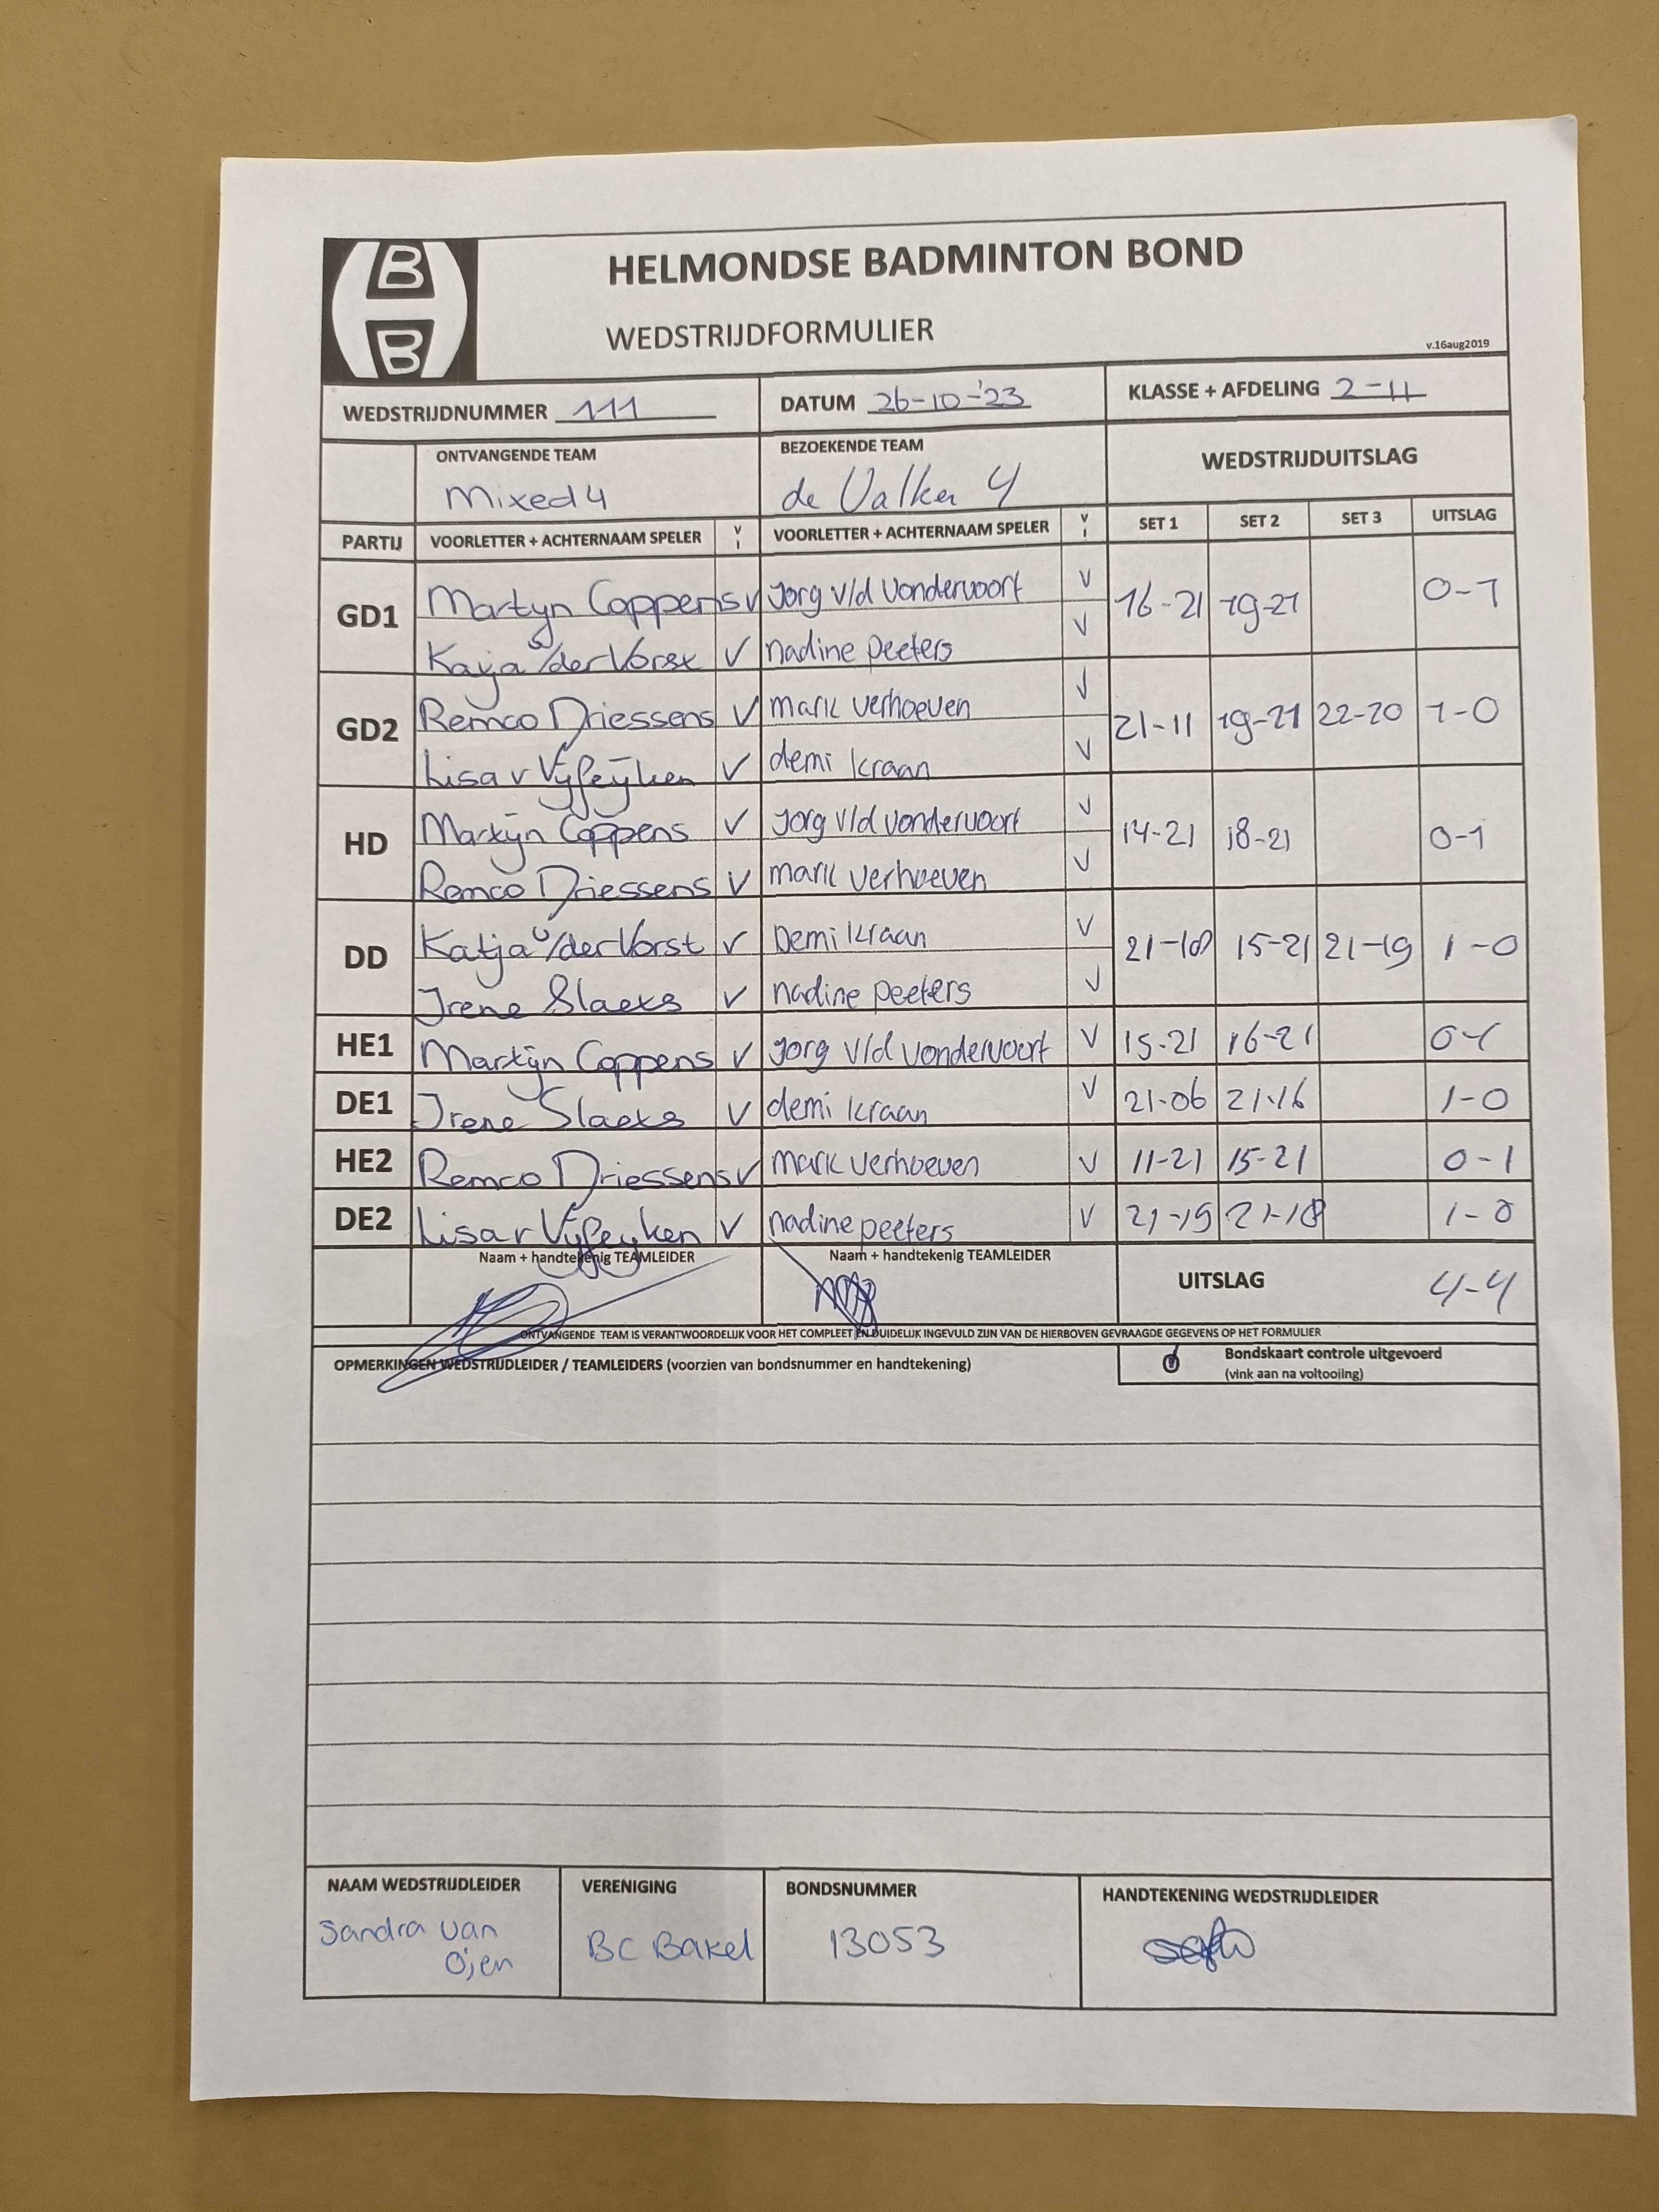 B
B
HELMONDSE BADMINTON BOND
WEDSTRIJDFORMULIER
v.16aug2019
WEDSTRIJDNUMMER 111 DATUM 26-10-'23 KLASSE + AFDELING 2-11
ONTVANGENDE TEAM BEZOEKENDE TEAM WEDSTRIJDUITSLAG
Mixed 4 de Valken 4
PARTIJ VOORLETTER + ACHTERNAAM SPELER V I VOORLETTER + ACHTERNAAM SPELER V I SET 1 SET 2 SET 3 UITSLAG
GD1 Martyn Coppens v Jorg v/d Vondervoort v 16-21 19-21 0-1
Katja v/der Vorst v nadine peeters v
GD2 Remco Driessens v mark verhoeven v 21-11 19-21 22-20 1-0
Lisa v Vijfeijken v demi kraan v
HD Martijn Coppens v Jorg v/d vondervoort v 14-21 18-21 0-1
Remco Driessens v mark verhoeven v
DD Katja v/der Vorst v Demi kraan v 21-18 15-21 21-19 1-0
Irene Slaets v nadine peeters v
HE1 Martijn Coppens v Jorg v/d vondervoort v 15-21 16-21 0-1
DE1 Irene Slaets v demi kraan v 21-06 21-16 1-0
HE2 Remco Driessens v mark verhoeven v 11-21 15-21 0-1
DE2 Lisa v Vijfeyken v nadine peeters v 21-19 21-18 1-0
Naam + handtekenig TEAMLEIDER Naam + handtekenig TEAMLEIDER UITSLAG 4-4
ONTVANGENDE TEAM IS VERANTWOORDELIJK VOOR HET COMPLEET EN DUIDELIJK INGEVULD ZIJN VAN DE HIERBOVEN GEVRAAGDE GEGEVENS OP HET FORMULIER
OPMERKINGEN WEDSTRIJDLEIDER / TEAMLEIDERS (voorzien van bondsnummer en handtekening) Bondskaart controle uitgevoerd
(vink aan na voltooiing)
NAAM WEDSTRIJDLEIDER VERENIGING BONDSNUMMER HANDTEKENING WEDSTRIJDLEIDER
Sandra van Oijen BC Bakel 13053